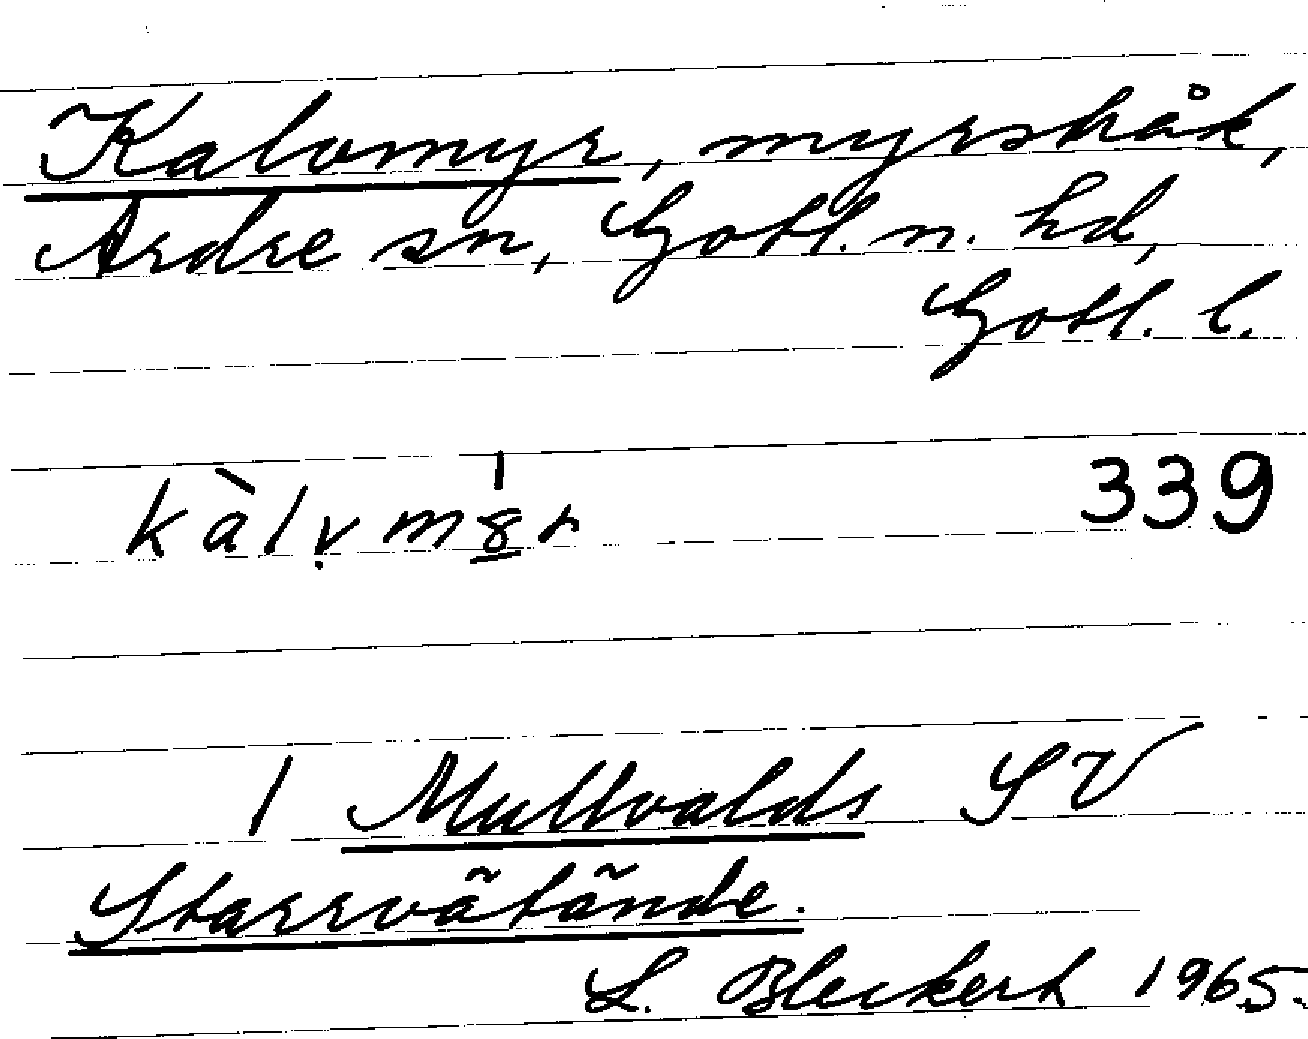 Kalvmyr, myrstråk,
Ardre sn, Gotl. n. hd,
Gotl. l.
339
I Mullvalds SV
Starrvätände.
L. Bleckert 1965.